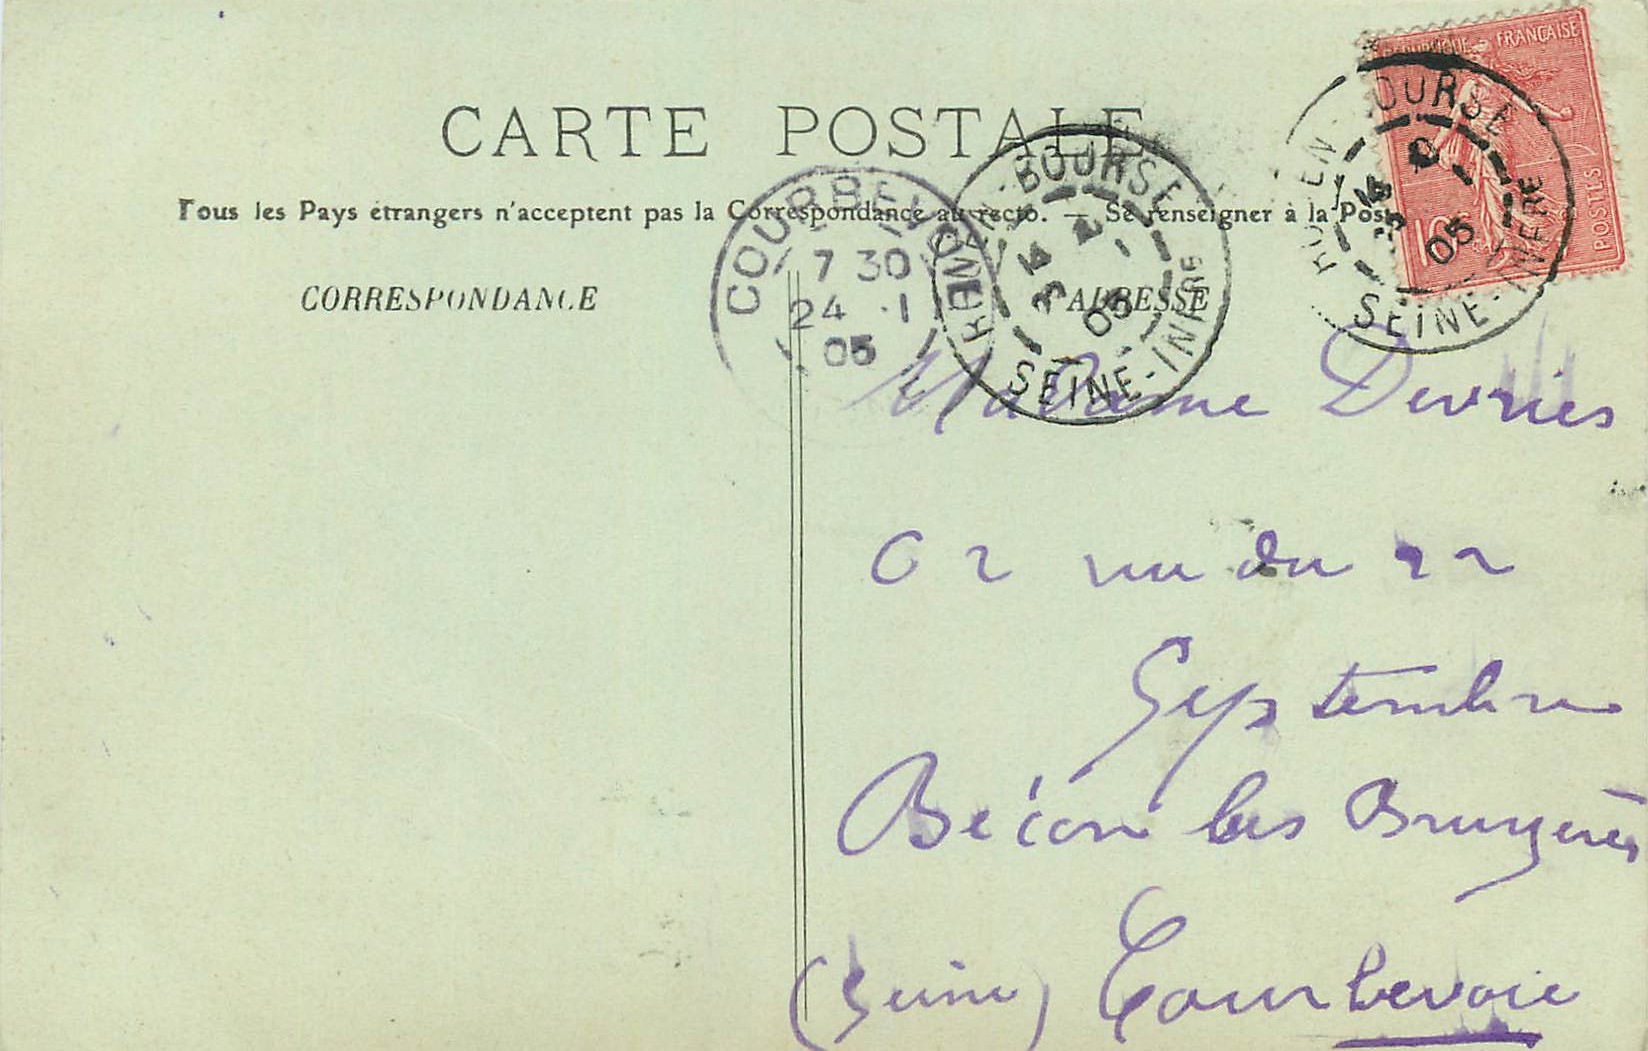 RÉPUBLIQUE FRANÇAISE
10
POSTES
CARTE POSTALE
Tous les Pays étrangers n'acceptent pas la Correspondance au recto. — Se renseigner à la Pos
CORRESPONDANCE
ADRESSE
COURBEVOIE
7 30
24 ·1
05
ROUEN-BOURSE
05
SEINE-INFRE
ROUEN-BOURSE
05
SEINE-INFRE
Madame Devriès
62 rue du 22
Septembre
Bécon les Bruyères
(Seine) Courbevoie